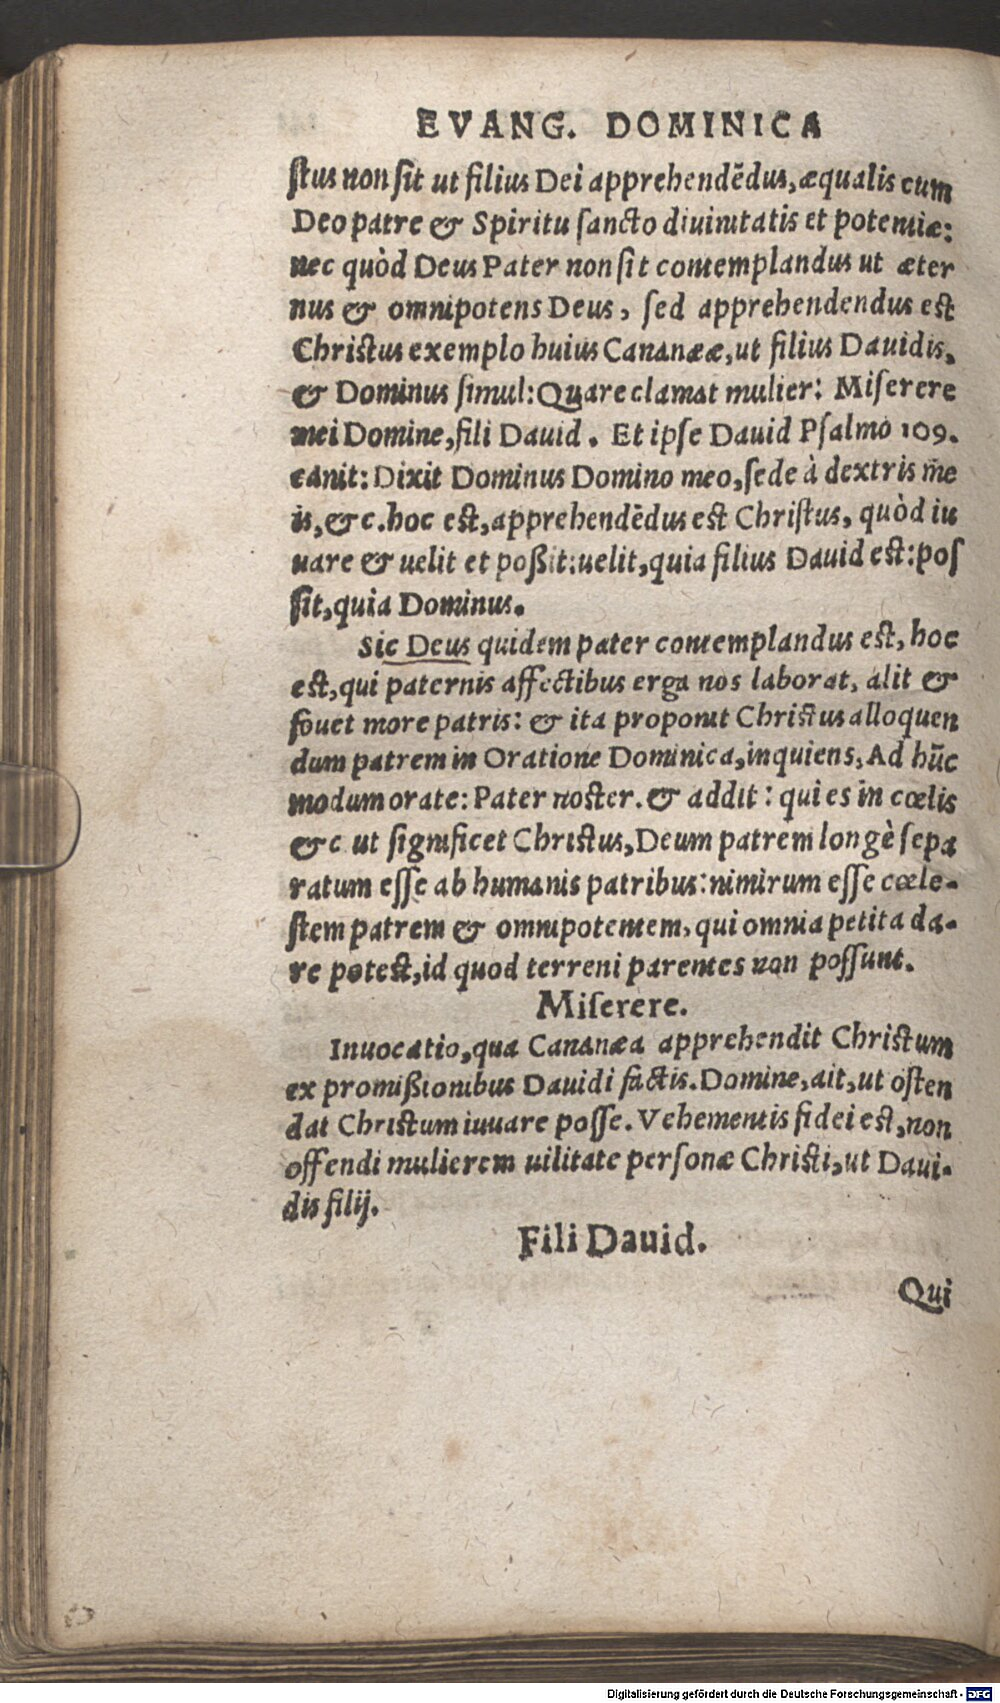 EVANG. DOMINICA
ſtus non ſit ut filius Dei apprehendẽdus, æqualis cum
Deo patre & Spiritu ſancto diuinitatis et potentiæ:
nec quòd Deus Pater non ſit contemplandus ut æter
nus & omnipotens Deus, ſed apprehendendus eſt
Chriſtus exemplo huius Cananææ, ut filius Dauidis,
& Dominus ſimul: Quare clamat mulier: Miſerere
mei Domine, fili Dauid. Et ipſe Dauid Pſalmo 109.
canit: Dixit Dominus Domino meo, ſede à dextris me
is, &c. hoc eſt, apprehendẽdus eſt Chriſtus, quòd iu
uare & uelit et poßit: uelit, quia filius Dauid eſt: poſ
ſit, quia Dominus.
Sic Deus quidem pater contemplandus eſt, hoc
eſt, qui paternis affectibus erga nos laborat, alit &
fouet more patris: & ita proponit Chriſtus alloquen
dum patrem in Oratione Dominica, inquiens, Ad hũc
modum orate: Pater noſter. & addit: qui es in cœlis
&c ut ſignificet Chriſtus, Deum patrem longè ſepa
ratum eſſe ab humanis patribus: nimirum eſſe cœle-
ſtem patrem & omnipotentem, qui omnia petita da-
re poteſt, id quod terreni parentes non poſſunt.
Miſerere.
Inuocatio, qua Cananæa apprehendit Chriſtum
ex promißionibus Dauidi factis. Domine, ait, ut oſten
dat Chriſtum iuuare poſſe. Vehementis fidei eſt, non
offendi mulierem uilitate perſonæ Chriſti, ut Daui-
dis filij.
Fili Dauid.
Qui
Digitalisierung gefördert durch die Deutsche Forschungsgemeinschaft - DFG